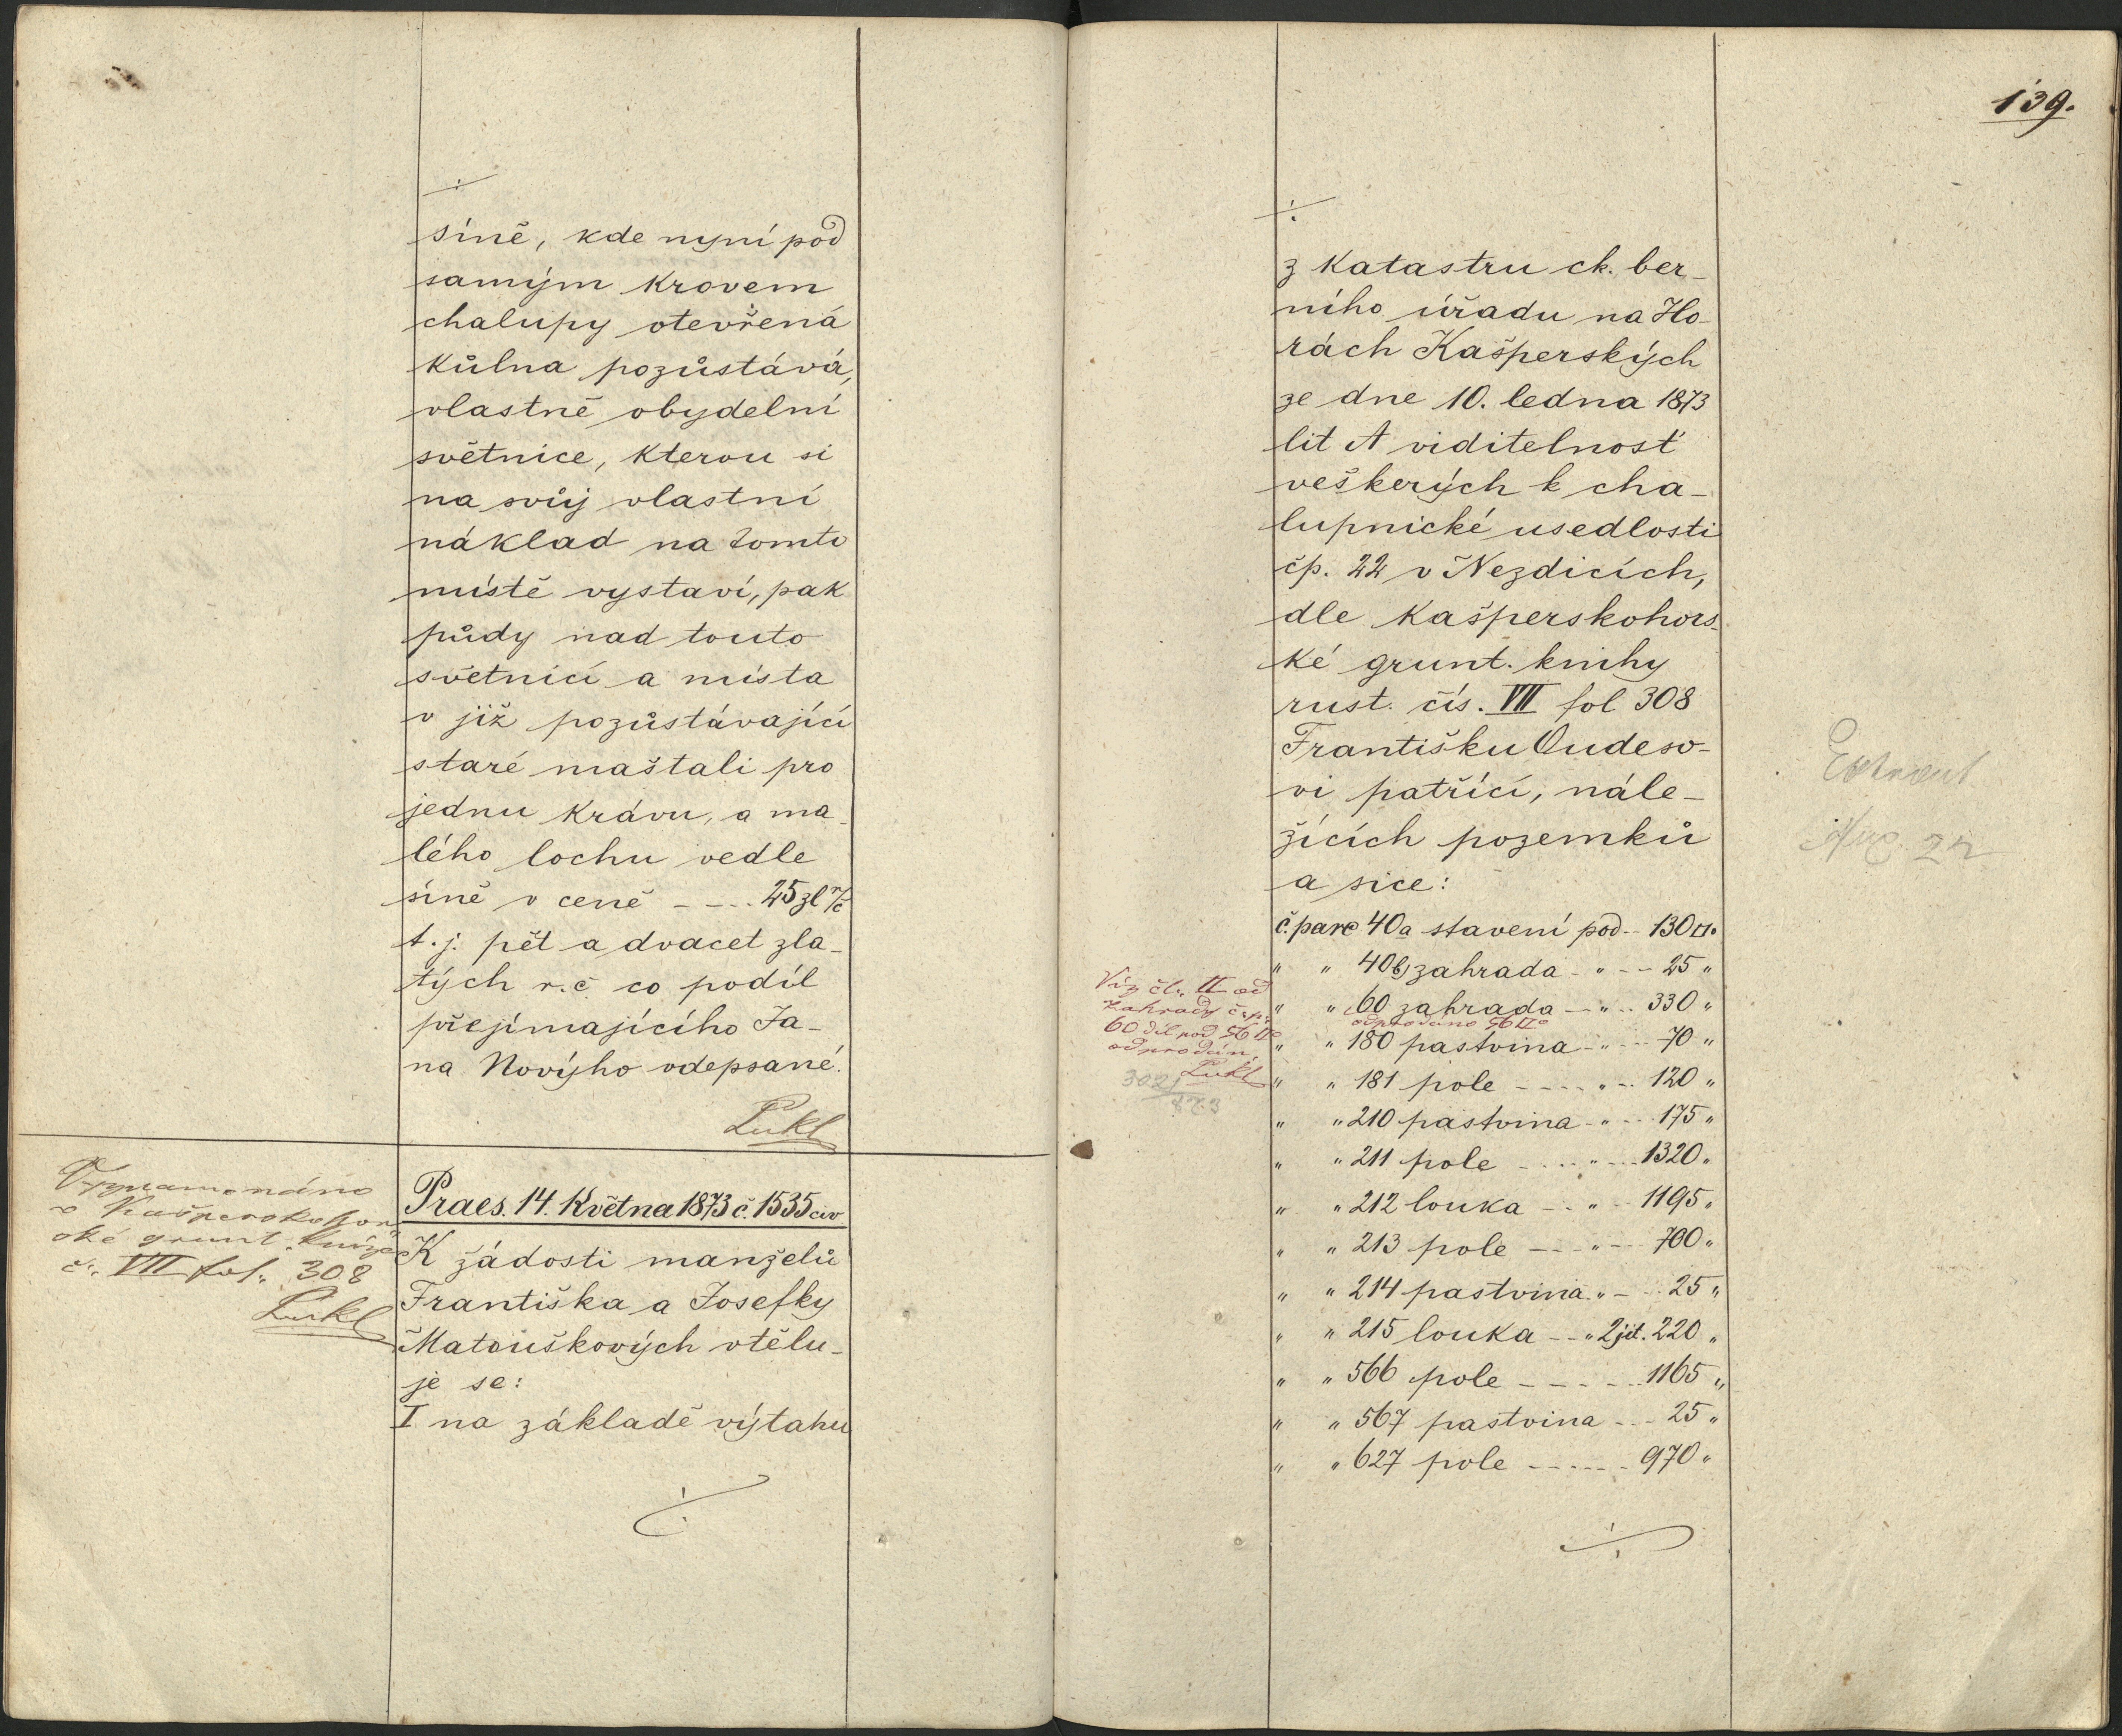 síně, kde nyní pod
samým krovem
chalupy otevřená
kůlna pozůstává,
vlastně obydelní
světnice, kterou si
na svůj vlastní
náklad na tomto
místě vystaví, pak
půdy nad touto
světnicí a místa
v již pozůstávající
staré maštali pro
jednu krávu, a ma-
lého lochu vedle
síně v ceně ---- 25 zl r/č
t.j. pět a dvacet zla-
tých r.č co podíl
přejímajícího Ja-
na Novýho odepsané.
Lukl
Vyznamenáno
v Kašperskohor-
ské grunt. knize
č. VII fol. 308
Lukl
Praes. 14. Května 1873 č. 1535 civ
K žádosti manželů
Františka a Josefky
Matouškových vtělu-
je se:
I na základě výtahu
139.
z katastru ck. ber-
ního úřadu na Ho-
rách Kašperských
ze dne 10. ledna 1873
lit A viditelnosť
veškerých k cha-
lupnické usedlosti
čp. 22 v Nezdicích,
dle Kašperskohors-
ké grunt. knihy
rust. čís. VII fol 308
Františku Oudeso-
vi patřící, nále-
žících pozemků
a sice:
č. parc 40a stavení pod -- 130□°
" " 40b) zahrada - " -- 25 "
" " 60 zahrada - " -- 330 "
odprodáno 56□°
" " 180 pastvina - " -- 70 "
" " 181 pole ---- " -- 120 "
" " 210 pastvina - " -- 175 "
" " 211 pole ---- " -- 1320 "
" " 212 louka -- " -- 1195 "
" " 213 pole --- " -- 700 "
" " 214 pastvina " --- 25 "
" " 215 louka -- " 2 jit. 220 "
" " 566 pole ----- 1165 "
" " 567 pastvina --- 25 "
" " 627 pole ----- 970 "
Viz čl. II od
zahrady č. p.
60 díl pod 56□°
odprodán.
Lukl